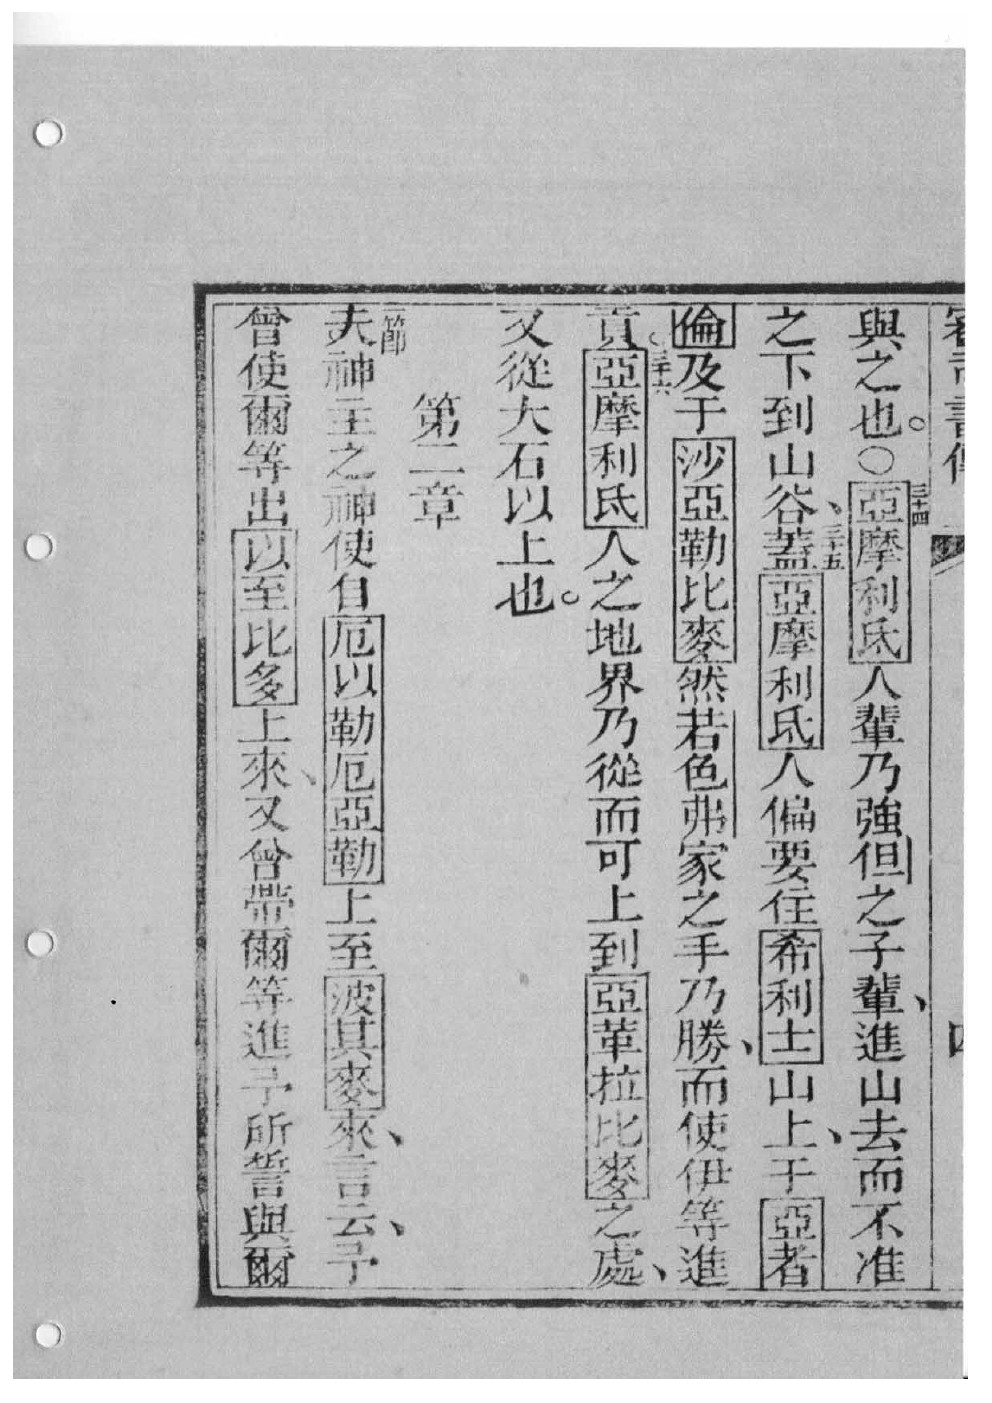 審司書傳 四
與之也。○三十四亞摩利氏人輩乃強但之子輩、進山去而不准
之下到山谷、三十五蓋亞摩利氏人偏要住希利士山上、于亞者
倫及于沙亞勒比麥然若色弗家之手乃勝、而使伊等進
貢。三十六亞摩利氏人之地界乃從而可上到亞革拉比麥之處、
又從大石以上也。
第二章
一節夫神主之神使自厄以勒厄亞勒上至波其麥來、言云、予
曾使爾等出以至比多上來、又曾帶爾等進予所誓與爾